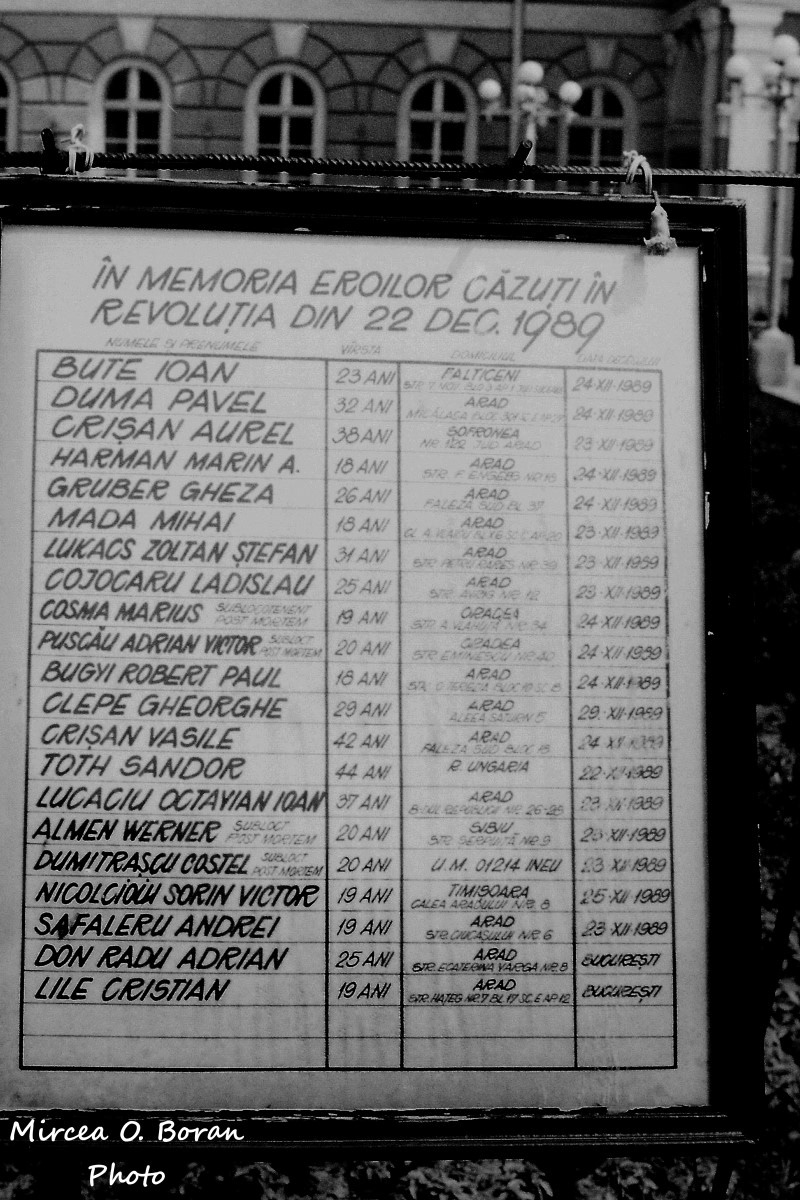 ÎN MEMORIA EROILOR CĂZUȚI ÎN
REVOLUȚIA DIN 22 DEC. 1989
NUMELE ȘI PRENUMELE VÎRSTA DOMICILIUL DATA DECESULUI
BUTE IOAN 23 ANI FALTICENI 24·XII·1989
DUMA PAVEL 32 ANI ARAD 24·XII·1989
MICĂLACA BLOC
CRIȘAN AUREL 38 ANI SOFRONEA 23·XII·1989
NR. JUD ARAD
HARMAN MARIN A. 18 ANI ARAD 24·XII·1989
STR. F. ENGELS NR
GRUBER GHEZA 26 ANI ARAD 24·XII·1989
FALEZA SUD BL 37
MADA MIHAI 18 ANI ARAD 23·XII·1989
CL. A. VLAICU
LUKACS ZOLTAN ȘTEFAN 31 ANI ARAD 23·XII·1989
STR. PETRU RAREȘ NR. 39
COJOCARU LADISLAU 25 ANI ARAD 23·XII·1989
STR. NR. 12
COSMA MARIUS SUBLOCOTENENT 19 ANI ORADEA 24·XII·1989
POST MORTEM STR. A. VLAHUȚĂ NR. 34
PUSCĂU ADRIAN VICTOR SUBLOCT 20 ANI ORADEA 24·XII·1989
POST MORTEM STR. EMINESCU NR. 40
BUGYI ROBERT PAUL 18 ANI ARAD 24·XII·1989
CLEPE GHEORGHE 29 ANI ARAD 29·XII·1989
ALEEA SATURN 5
CRIȘAN VASILE 42 ANI ARAD 24 XII 1989
FALEZA SUD BLOC
TOTH SANDOR 44 ANI R. UNGARIA 22·XII·1989
LUCACIU OCTAVIAN IOAN 37 ANI ARAD 23·XII·1989
B-DUL REPUBLICII NR. 26-28
ALMEN WERNER SUBLOCT 20 ANI SIBIU 23·XII·1989
POST MORTEM STR. NR. 9
DUMITRAȘCU COSTEL SUBLOCT 20 ANI U.M. 01214 INEU 23 XII·1989
POST MORTEM
NICOLCIOIU SORIN VICTOR 19 ANI TIMIȘOARA 25·XII·1989
CALEA ARADULUI NR. 8
SAFALERU ANDREI 19 ANI ARAD 23·XII·1989
STR. CIUCASULUI NR. 6
DON RADU ADRIAN 25 ANI ARAD BUCUREȘTI
STR. ECATERINA VARGA NR. 8
LILE CRISTIAN 19 ANI ARAD BUCUREȘTI
STR. HAȚEG NR. 7 BL. 17 SC. E AP. 12
Mircea O. Boran
Photo